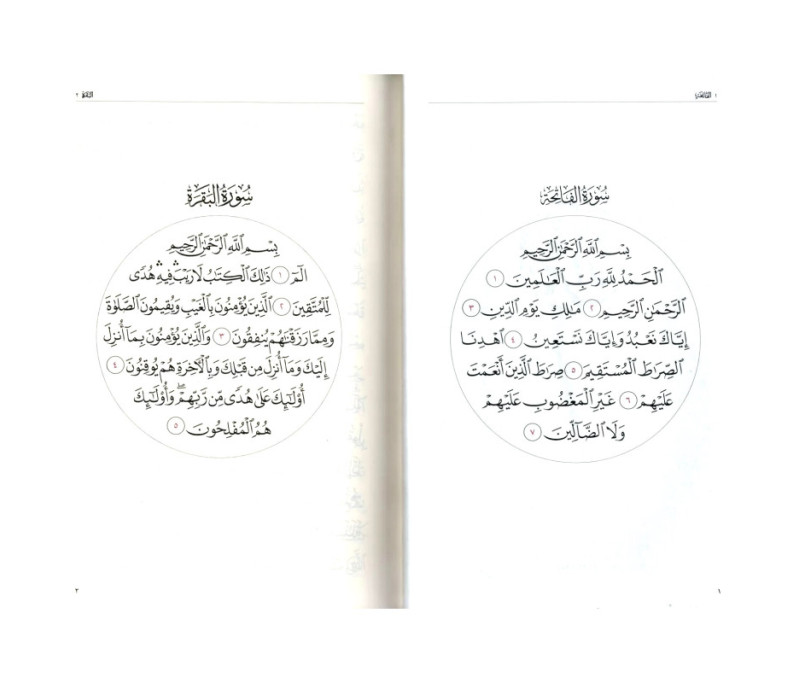 ١ الفاتحة
سُورَةُ الفَاتِحَة
بِسْمِ ٱللَّهِ ٱلرَّحْمَٰنِ ٱلرَّحِيمِ
ٱلْحَمْدُ لِلَّهِ رَبِّ ٱلْعَٰلَمِينَ ١
ٱلرَّحْمَٰنِ ٱلرَّحِيمِ ٢ مَٰلِكِ يَوْمِ ٱلدِّينِ ٣
إِيَّاكَ نَعْبُدُ وَإِيَّاكَ نَسْتَعِينُ ٤ ٱهْدِنَا
ٱلصِّرَٰطَ ٱلْمُسْتَقِيمَ ٥ صِرَٰطَ ٱلَّذِينَ أَنْعَمْتَ
عَلَيْهِمْ ٦ غَيْرِ ٱلْمَغْضُوبِ عَلَيْهِمْ
وَلَا ٱلضَّآلِّينَ ٧
البقرة ٢
سُورَةُ البَقَرَة
بِسْمِ ٱللَّهِ ٱلرَّحْمَٰنِ ٱلرَّحِيمِ
الٓمٓ ١ ذَٰلِكَ ٱلْكِتَٰبُ لَا رَيْبَۛ فِيهِۛ هُدًى
لِّلْمُتَّقِينَ ٢ ٱلَّذِينَ يُؤْمِنُونَ بِٱلْغَيْبِ وَيُقِيمُونَ ٱلصَّلَوٰةَ
وَمِمَّا رَزَقْنَٰهُمْ يُنفِقُونَ ٣ وَٱلَّذِينَ يُؤْمِنُونَ بِمَآ أُنزِلَ
إِلَيْكَ وَمَآ أُنزِلَ مِن قَبْلِكَ وَبِٱلْءَاخِرَةِ هُمْ يُوقِنُونَ ٤
أُو۟لَٰٓئِكَ عَلَىٰ هُدًى مِّن رَّبِّهِمْۖ وَأُو۟لَٰٓئِكَ
هُمُ ٱلْمُفْلِحُونَ ٥